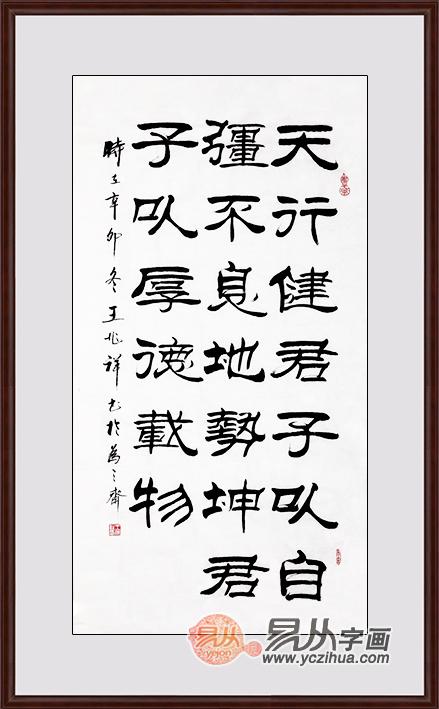 天行健君子以自
彊不息地勢坤君
子以厚德載物
時在辛卯冬王兆祥书於万之齋
易从
yiren
易从字画
www.yczihua.com